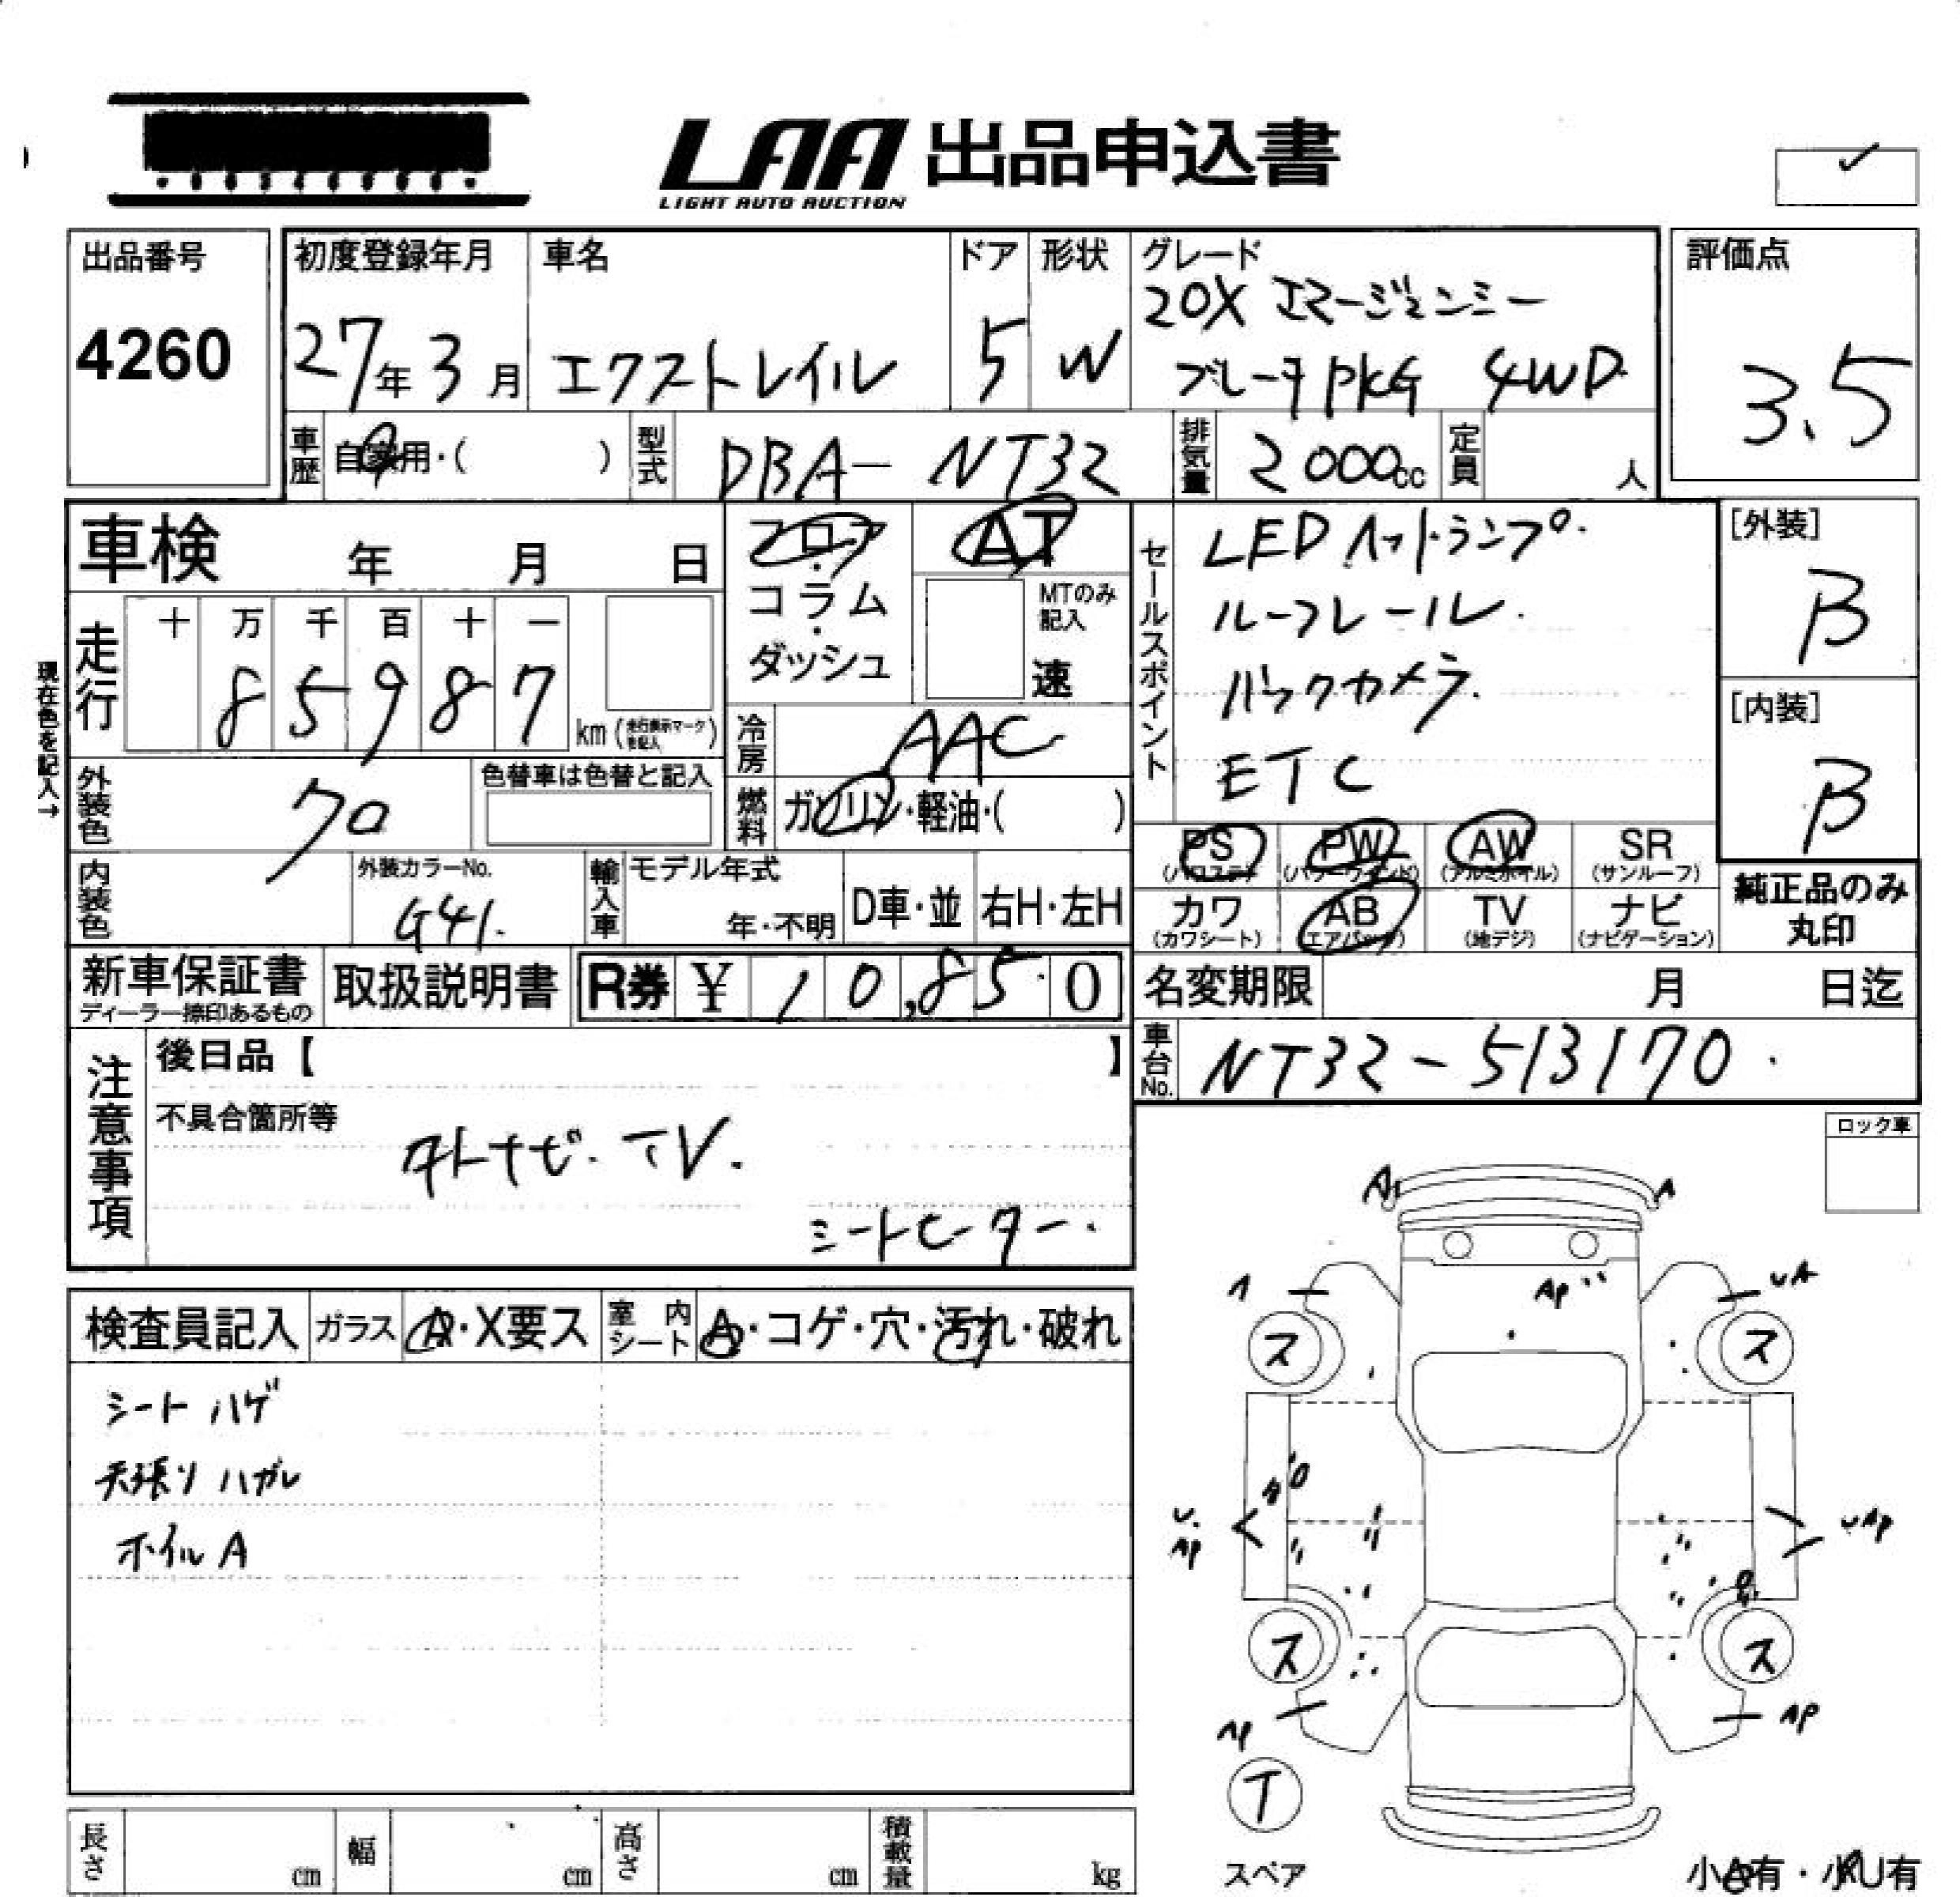 LAA 出品申込書
LIGHT AUTO AUCTION
出品番号
4260
初度登録年月
27年 3月
車名
エクストレイル
ドア
5
形状
W
グレード
20X エマージェンシー
ブレーキPKG 4WD
評価点
3.5
車歴
自家用・( )
型式
DBA- NT32
排気量
2000cc
定員
人
車検 年 月 日
フロア
・
コラム
・
ダッシュ
AT
MTのみ
記入
速
セールスポイント
LEDヘッドランプ
ルーフレール
バックカメラ
ETC
[外装]
B
[内装]
B
現在色を記入→
走行
十 万 千 百 十 一
8 5 9 8 7
km(走行表示マークを記入)
冷房
AAC
外装色
クロ
色替車は色替と記入
燃料
ガソリン・軽油・( )
PS AW PW SR
(パワステ) (パワーウィンド) (アルミホイル) (サンルーフ)
カワ AB TV ナビ
(カワシート) (エアバック) (地デジ) (ナビゲーション)
純正品のみ
丸印
内装色
外装カラーNo.
G41.
輸入車
モデル年式
年・不明
D車・並
右H・左H
新車保証書
ディーラー捺印あるもの
取扱説明書
R券 ¥ 10,850
名変期限 月 日迄
車台No.
NT32-513170
注意事項
後日品【 】
不具合箇所等
外ナビ・TV.
シートヒーター.
ロック車
検査員記入
ガラス
A・X要ス
室内シート
A・コゲ・穴・汚れ・破れ
シート ハゲ
天張り ハガレ
ホイル A
A A
A Ap UA
ス ス
U. Ap UAp
ス ス
Ap Ap
T
スペア
小A有・小U有
長さ cm
幅 cm
高さ cm
積載量 kg